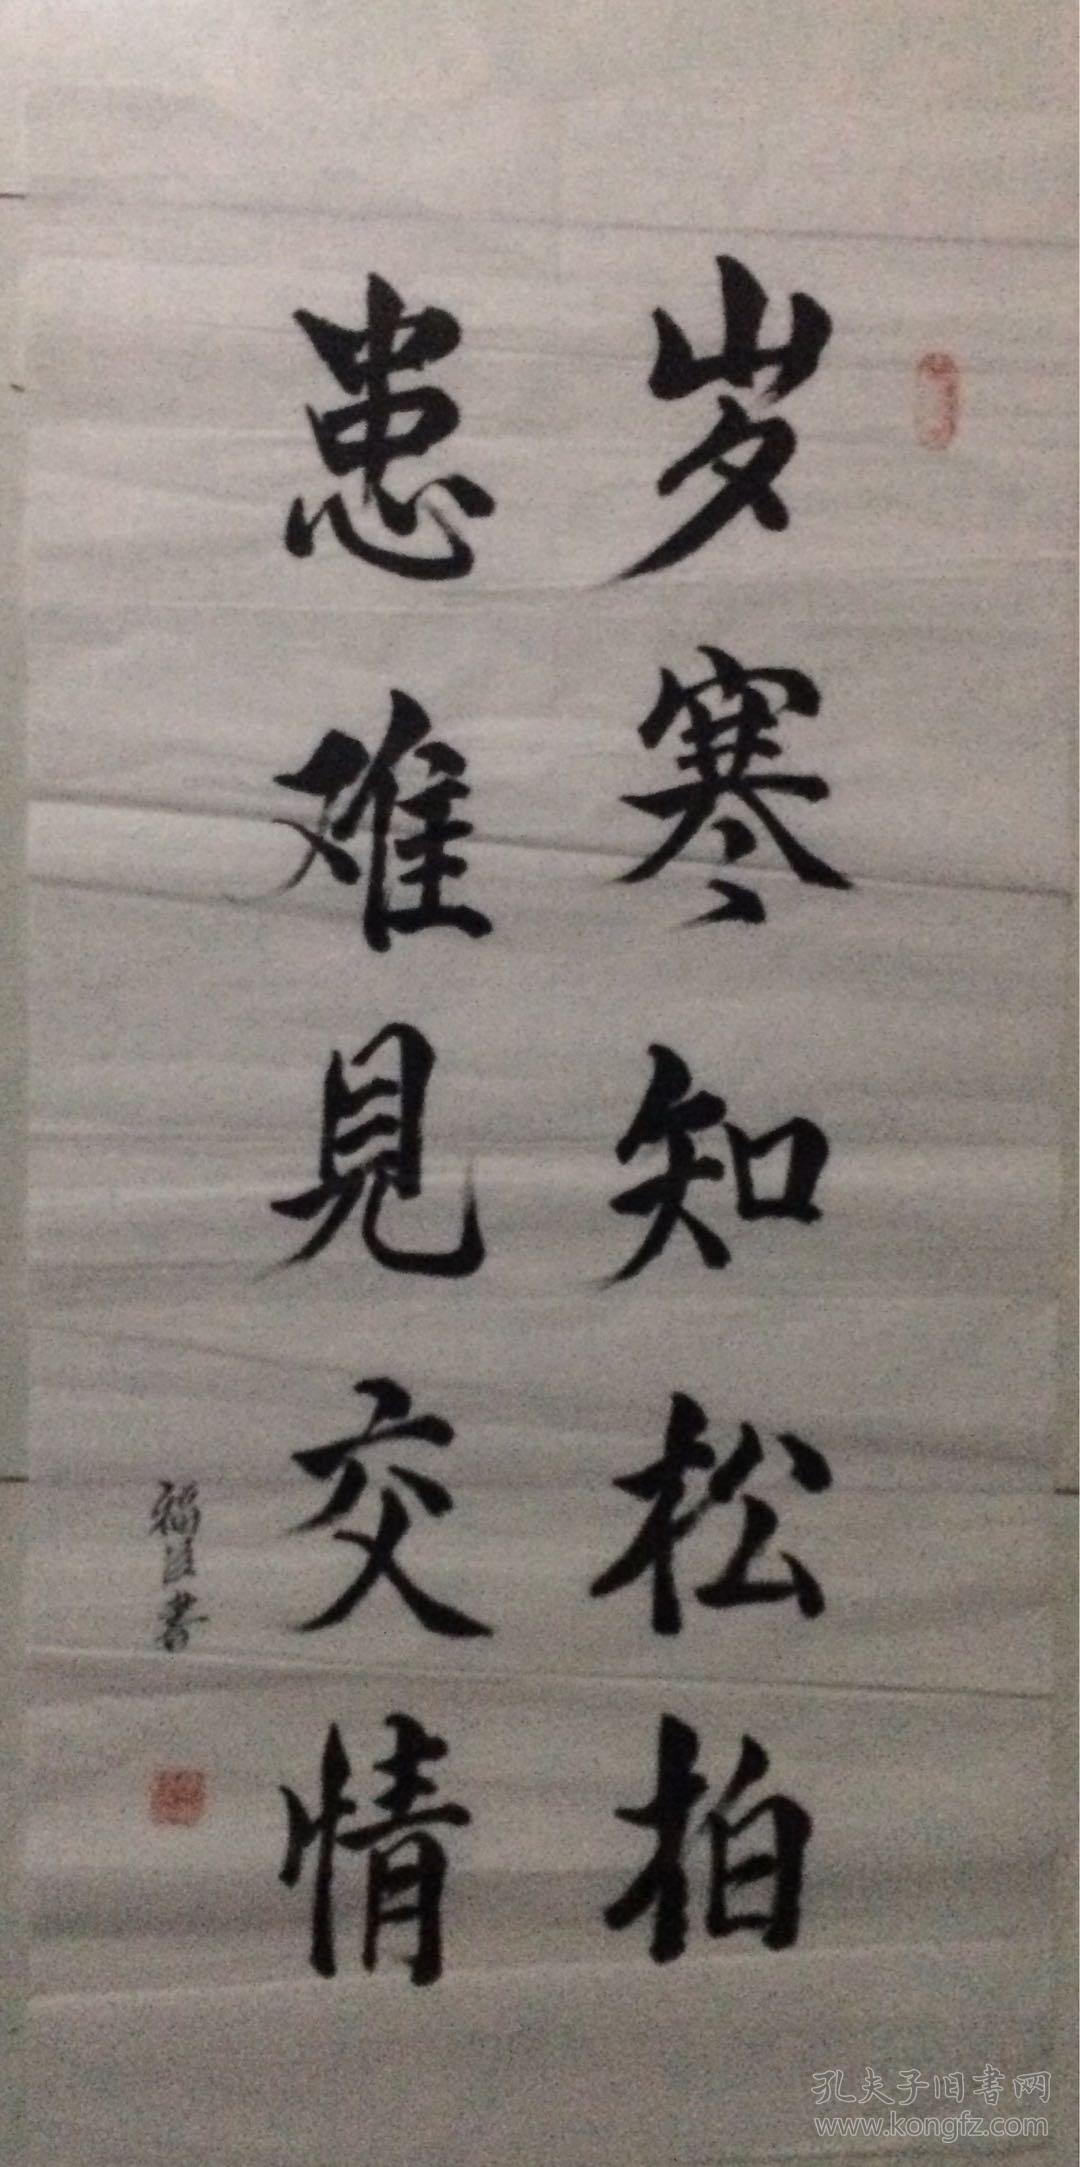 岁寒知松柏
患难见交情
孔夫子旧书网
www.kongfz.com